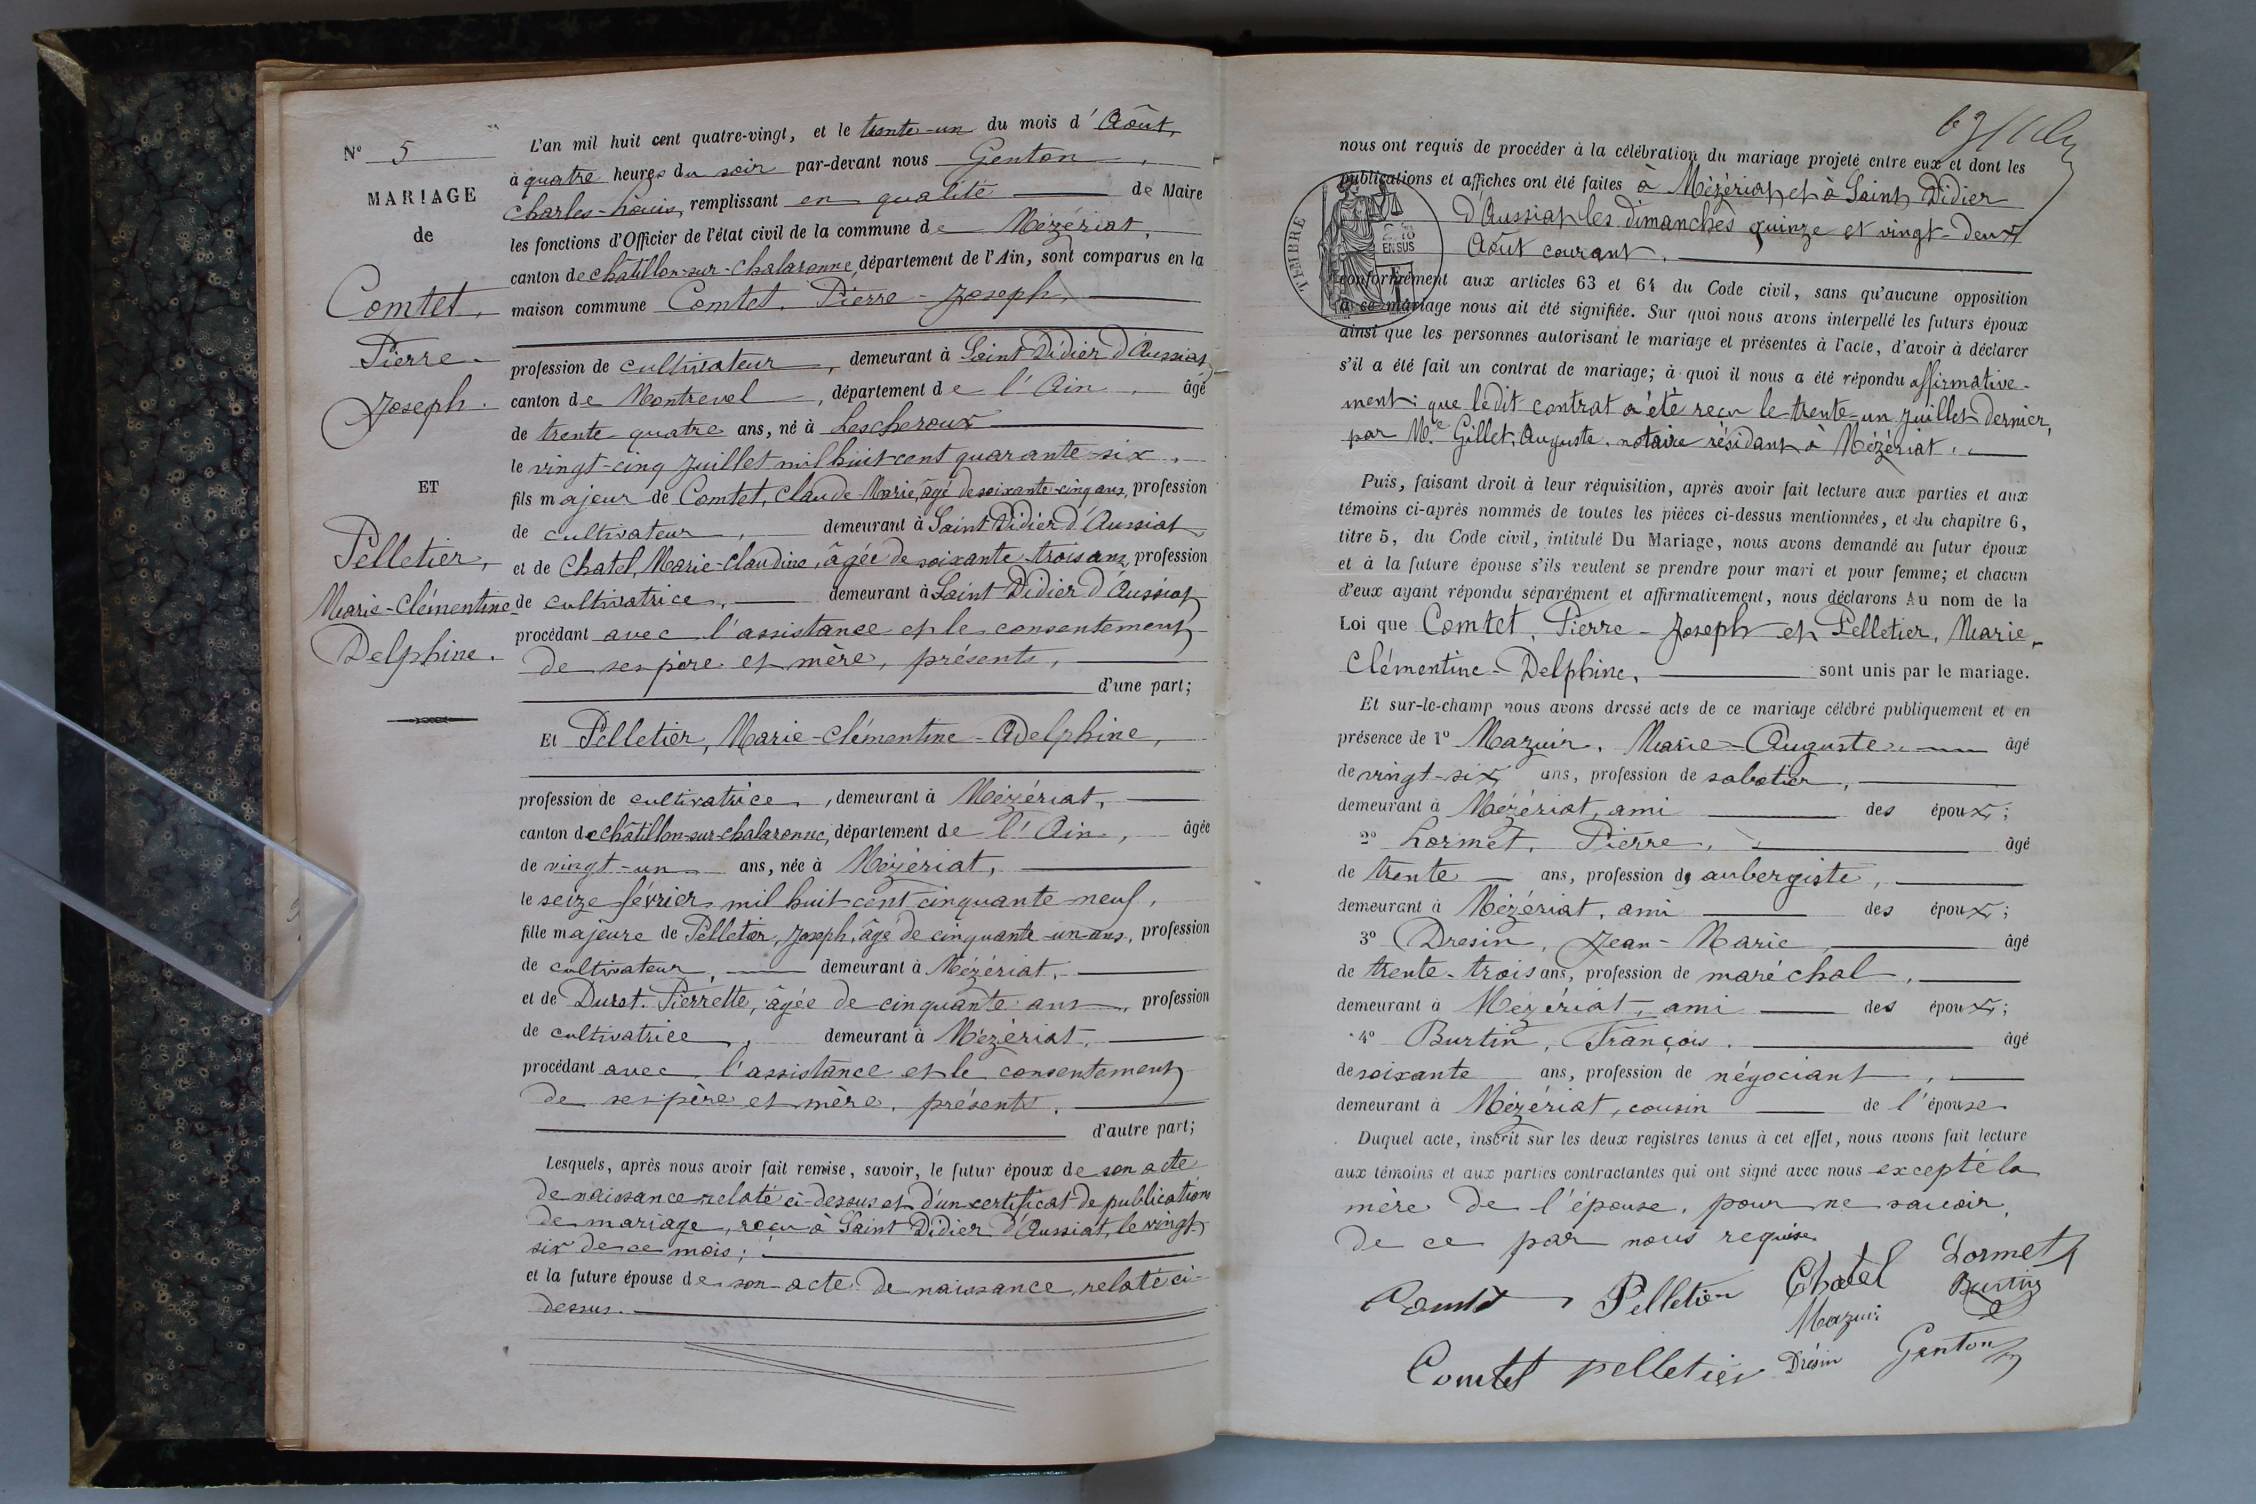 N° 5
MARIAGE
de
Comtet,
Pierre-
Joseph.
ET
Pelletier,
Marie-Clémentine-
Delphine.
L'an mil huit cent quatre-vingt, et le trente-un du mois d'Août,
à quatre heures du soir par-devant nous Genton,
Charles-Louis, remplissant en qualité de Maire
les fonctions d'Officier de l'état civil de la commune de Mézériat,
canton de Châtillon-sur-Chalaronne, département de l'Ain, sont comparus en la
maison commune Comtet, Pierre-Joseph,
profession de cultivateur, demeurant à Saint Didier d'Aussiat,
canton de Montrevel, département de l'Ain, âgé
de trente-quatre ans, né à Lescheroux
le vingt-cinq Juillet mil huit cent quarante-six,
fils majeur de Comtet, Claude Marie, âgé de soixante-cinq ans, profession
de cultivateur, demeurant à Saint Didier d'Aussiat
et de Chatel, Marie-Claudine, âgée de soixante-trois ans, profession
de cultivatrice, demeurant à Saint Didier d'Aussiat
procédant avec l'assistance et le consentement
de ses père et mère, présents,
d'une part;
Et Pelletier, Marie-Clémentine-Adelphine,
profession de cultivatrice, demeurant à Mézériat,
canton de Châtillon-sur-Chalaronne, département de l'Ain, âgée
de vingt-un ans, née à Mézériat,
le seize février mil huit cent cinquante-neuf,
fille majeure de Pelletier, Joseph, âgé de cinquante-un ans, profession
de cultivateur, demeurant à Mézériat,
et de Durst, Pierrette, âgée de cinquante ans, profession
de cultivatrice, demeurant à Mézériat,
procédant avec l'assistance et le consentement
de ses père et mère, présents,
d'autre part;
Lesquels, après nous avoir fait remise, savoir, le futur époux de son acte
de naissance relaté ci-dessus et d'un certificat de publication
de mariage, reçu à Saint Didier d'Aussiat, le vingt-
six de ce mois;
et la future épouse de son acte de naissance, relaté ci-
dessus.
nous ont requis de procéder à la célébration du mariage projeté entre eux et dont les
publications et affiches ont été faites à Mézériat et à Saint Didier
d'Aussiat les dimanches quinze et vingt-deux
Août courant,
TIMBRE
EN SUS
conformément aux articles 63 et 64 du Code civil, sans qu'aucune opposition
à ce mariage nous ait été signifiée. Sur quoi nous avons interpellé les futurs époux
ainsi que les personnes autorisant le mariage et présentes à l'acte, d'avoir à déclarer
s'il a été fait un contrat de mariage; à quoi il nous a été répondu affirmative-
ment: que ledit contrat a été reçu le trente-un juillet dernier,
par Me Gillet, Auguste, notaire résidant à Mézériat.
Puis, faisant droit à leur réquisition, après avoir fait lecture aux parties et aux
témoins ci-après nommés de toutes les pièces ci-dessus mentionnées, et du chapitre 6,
titre 5, du Code civil, intitulé Du Mariage, nous avons demandé au futur époux
et à la future épouse s'ils veulent se prendre pour mari et pour femme; et chacun
d'eux ayant répondu séparément et affirmativement, nous déclarons Au nom de la
Loi que Comtet, Pierre-Joseph et Pelletier, Marie-
Clémentine-Delphine, sont unis par le mariage.
Et sur-le-champ nous avons dressé acte de ce mariage célébré publiquement et en
présence de 1° Mazuir, Marie-Auguste âgé
de vingt-six ans, profession de sabotier,
demeurant à Mézériat, ami des époux;
2° Lormet, Pierre, âgé
de trente ans, profession de aubergiste,
demeurant à Mézériat, ami des époux;
3° Dresin, Jean-Marie, âgé
de trente-trois ans, profession de maréchal,
demeurant à Mézériat, ami des époux;
4° Burtin, François, âgé
de soixante ans, profession de négociant,
demeurant à Mézériat, cousin de l'épouse
Duquel acte, inscrit sur les deux registres tenus à cet effet, nous avons fait lecture
aux témoins et aux parties contractantes qui ont signé avec nous excepté la
mère de l'épouse, pour ne savoir,
de ce par nous requise.
Comtet Pelletier Chatel Lormet
Mazuir Burtin
Comtet pelletier Drésin Genton